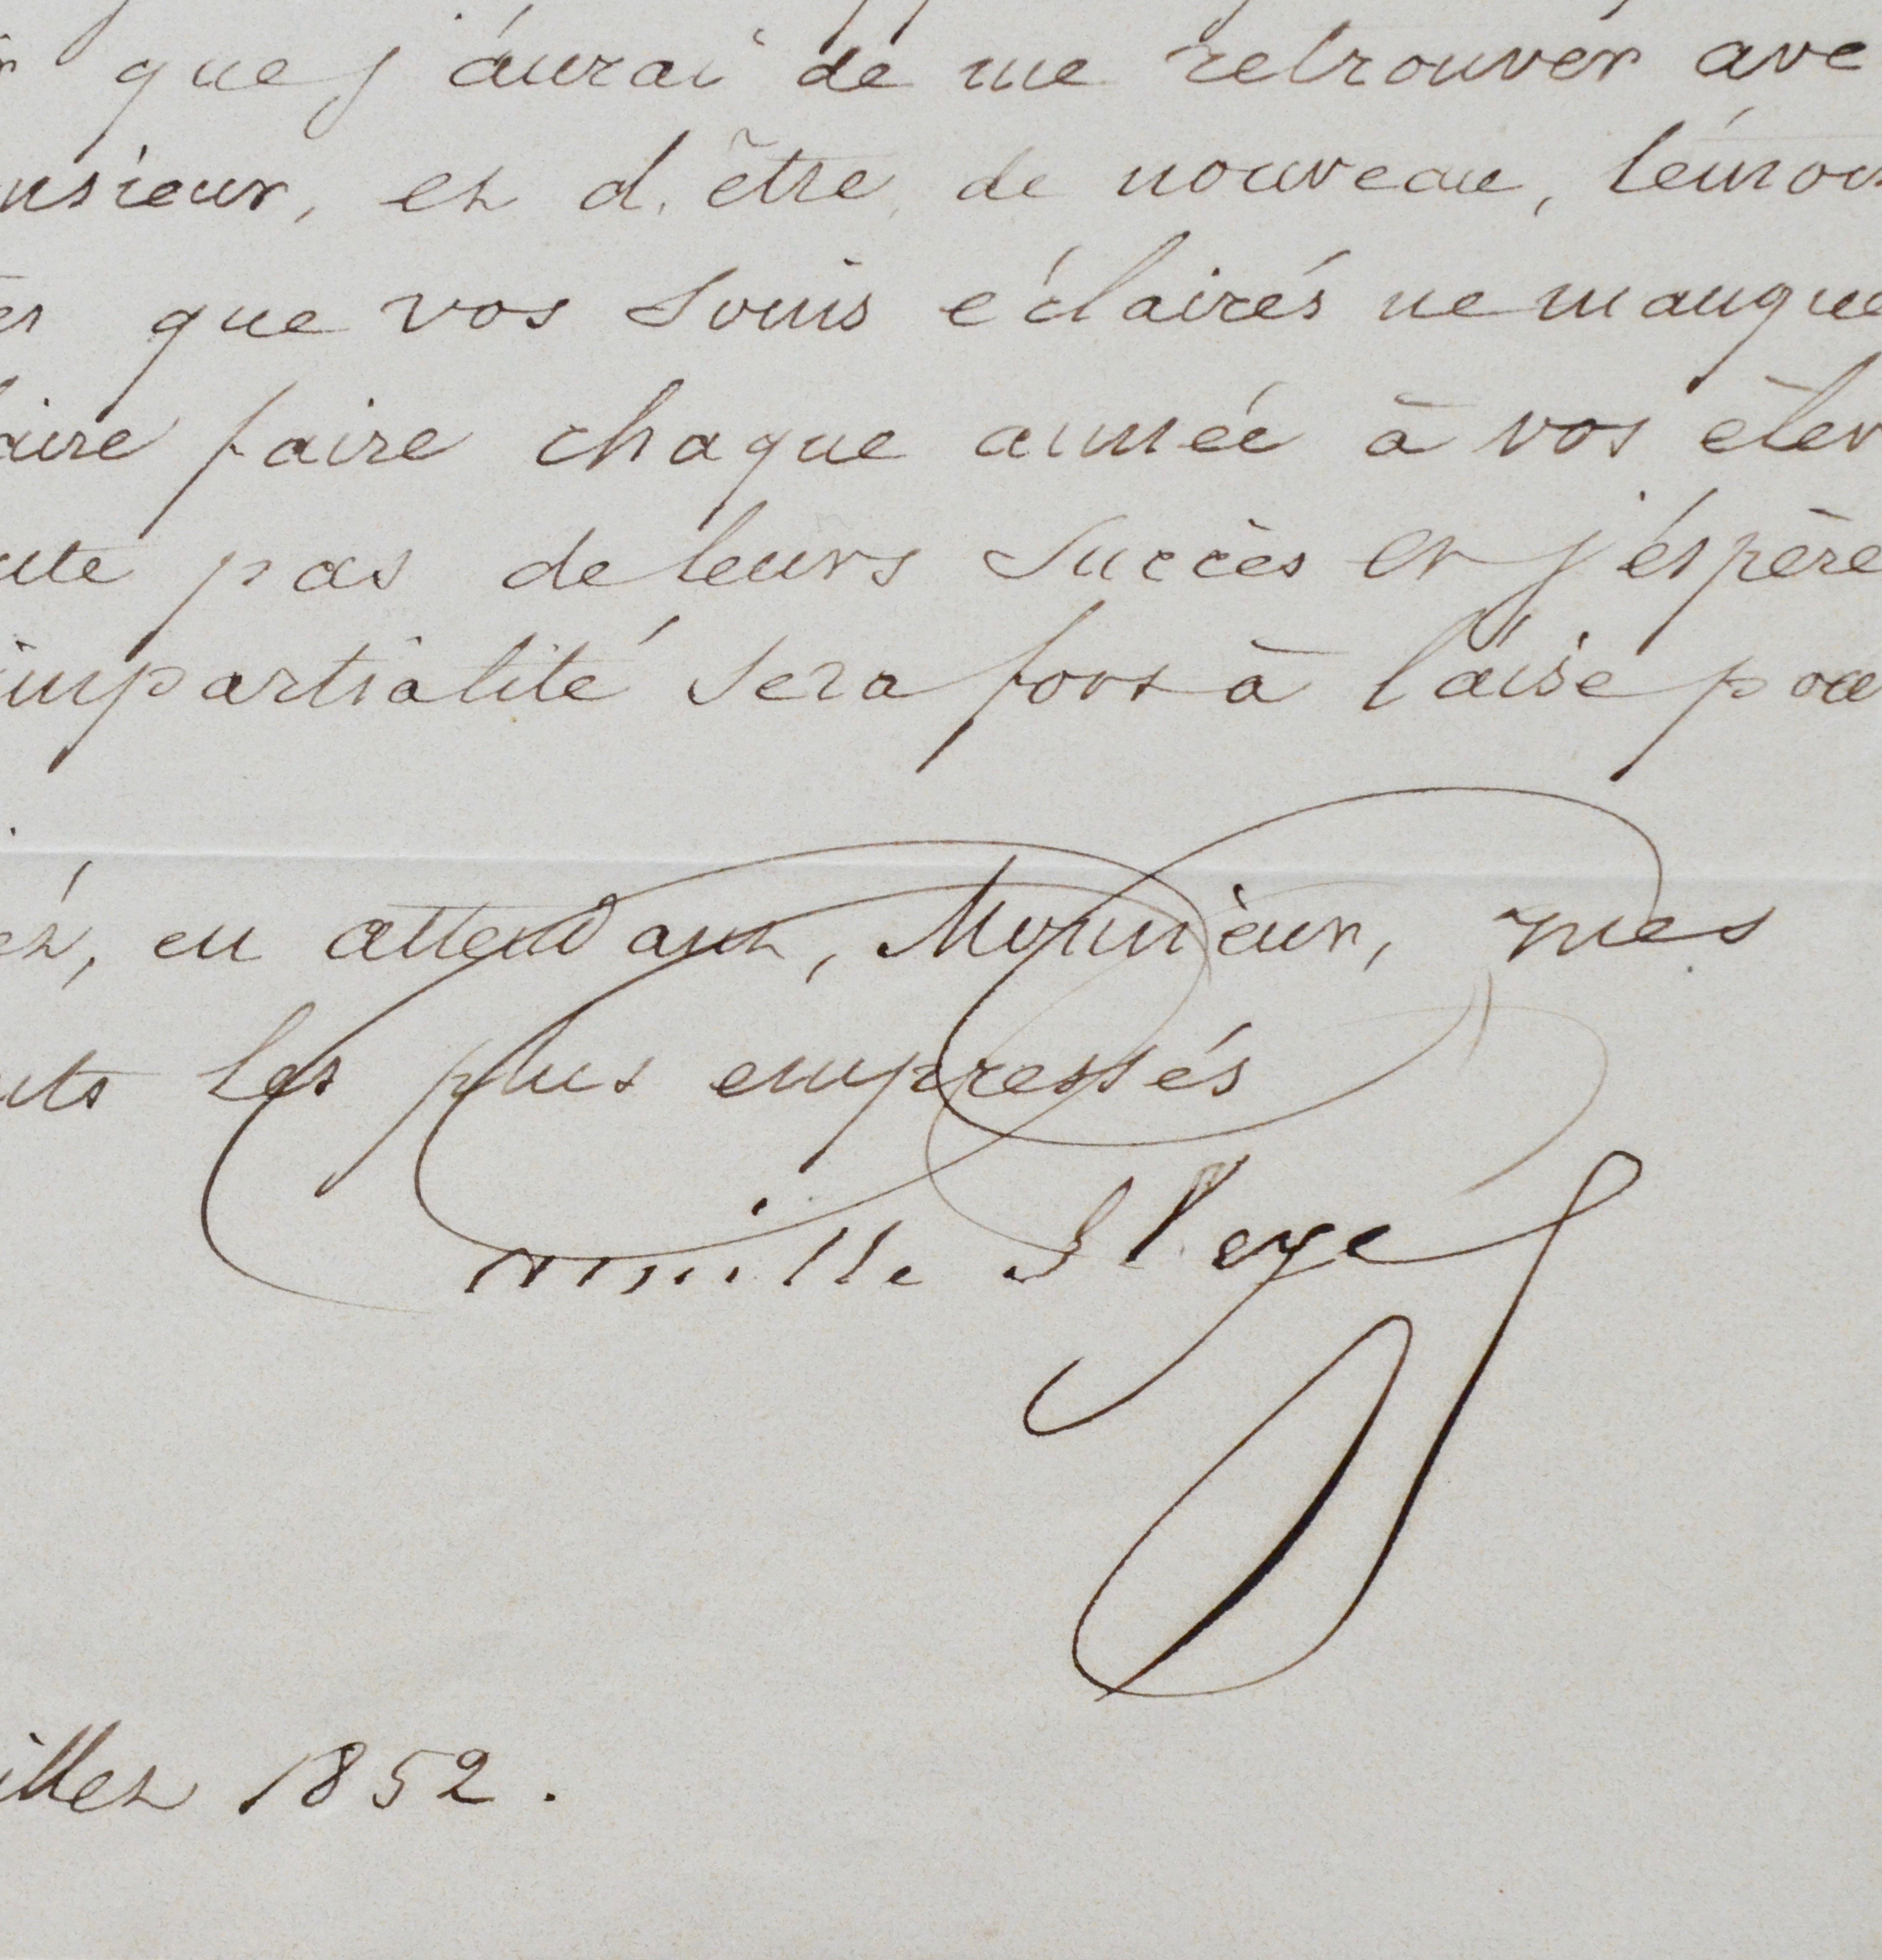 que j'aurai de me retrouver ave
nsieur, et d'être, de nouveau, témoi
que vos soins éclairés ne manque
aire faire chaque année à vos élèv
ute pas de leurs succès et j'espère
impartialité sera fort à l'aise pou
ez, en attendant, Monsieur, mes
nts les plus empressés
Camille Pleyel
illet 1852.